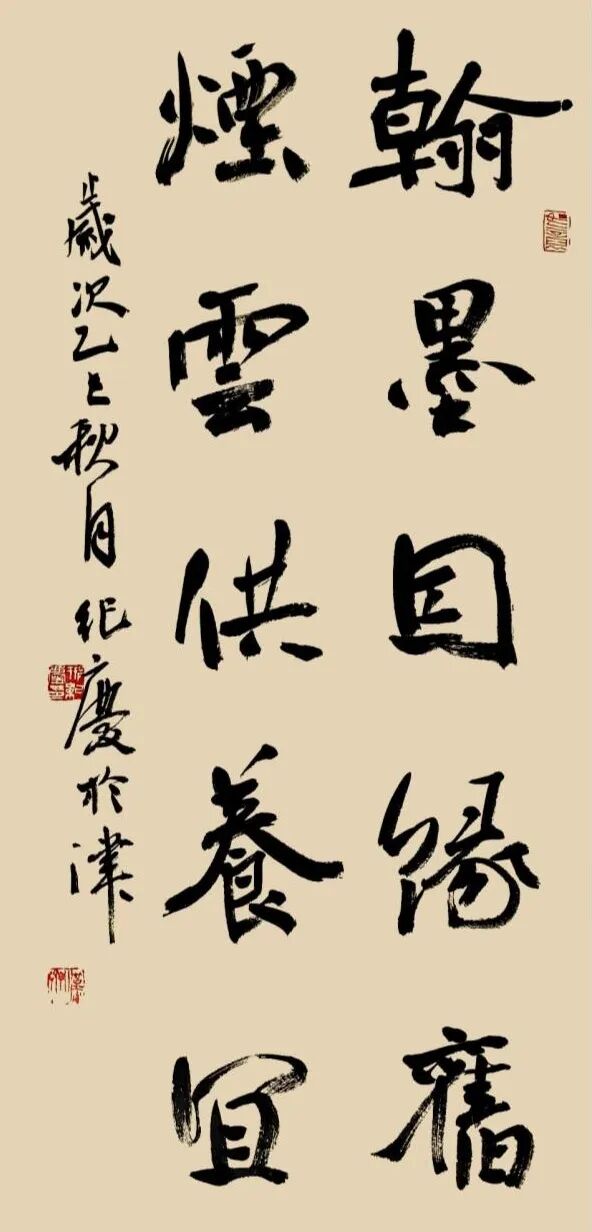 翰墨因緣舊
煙雲供養宜
歲次乙巳秋月纪慶於津